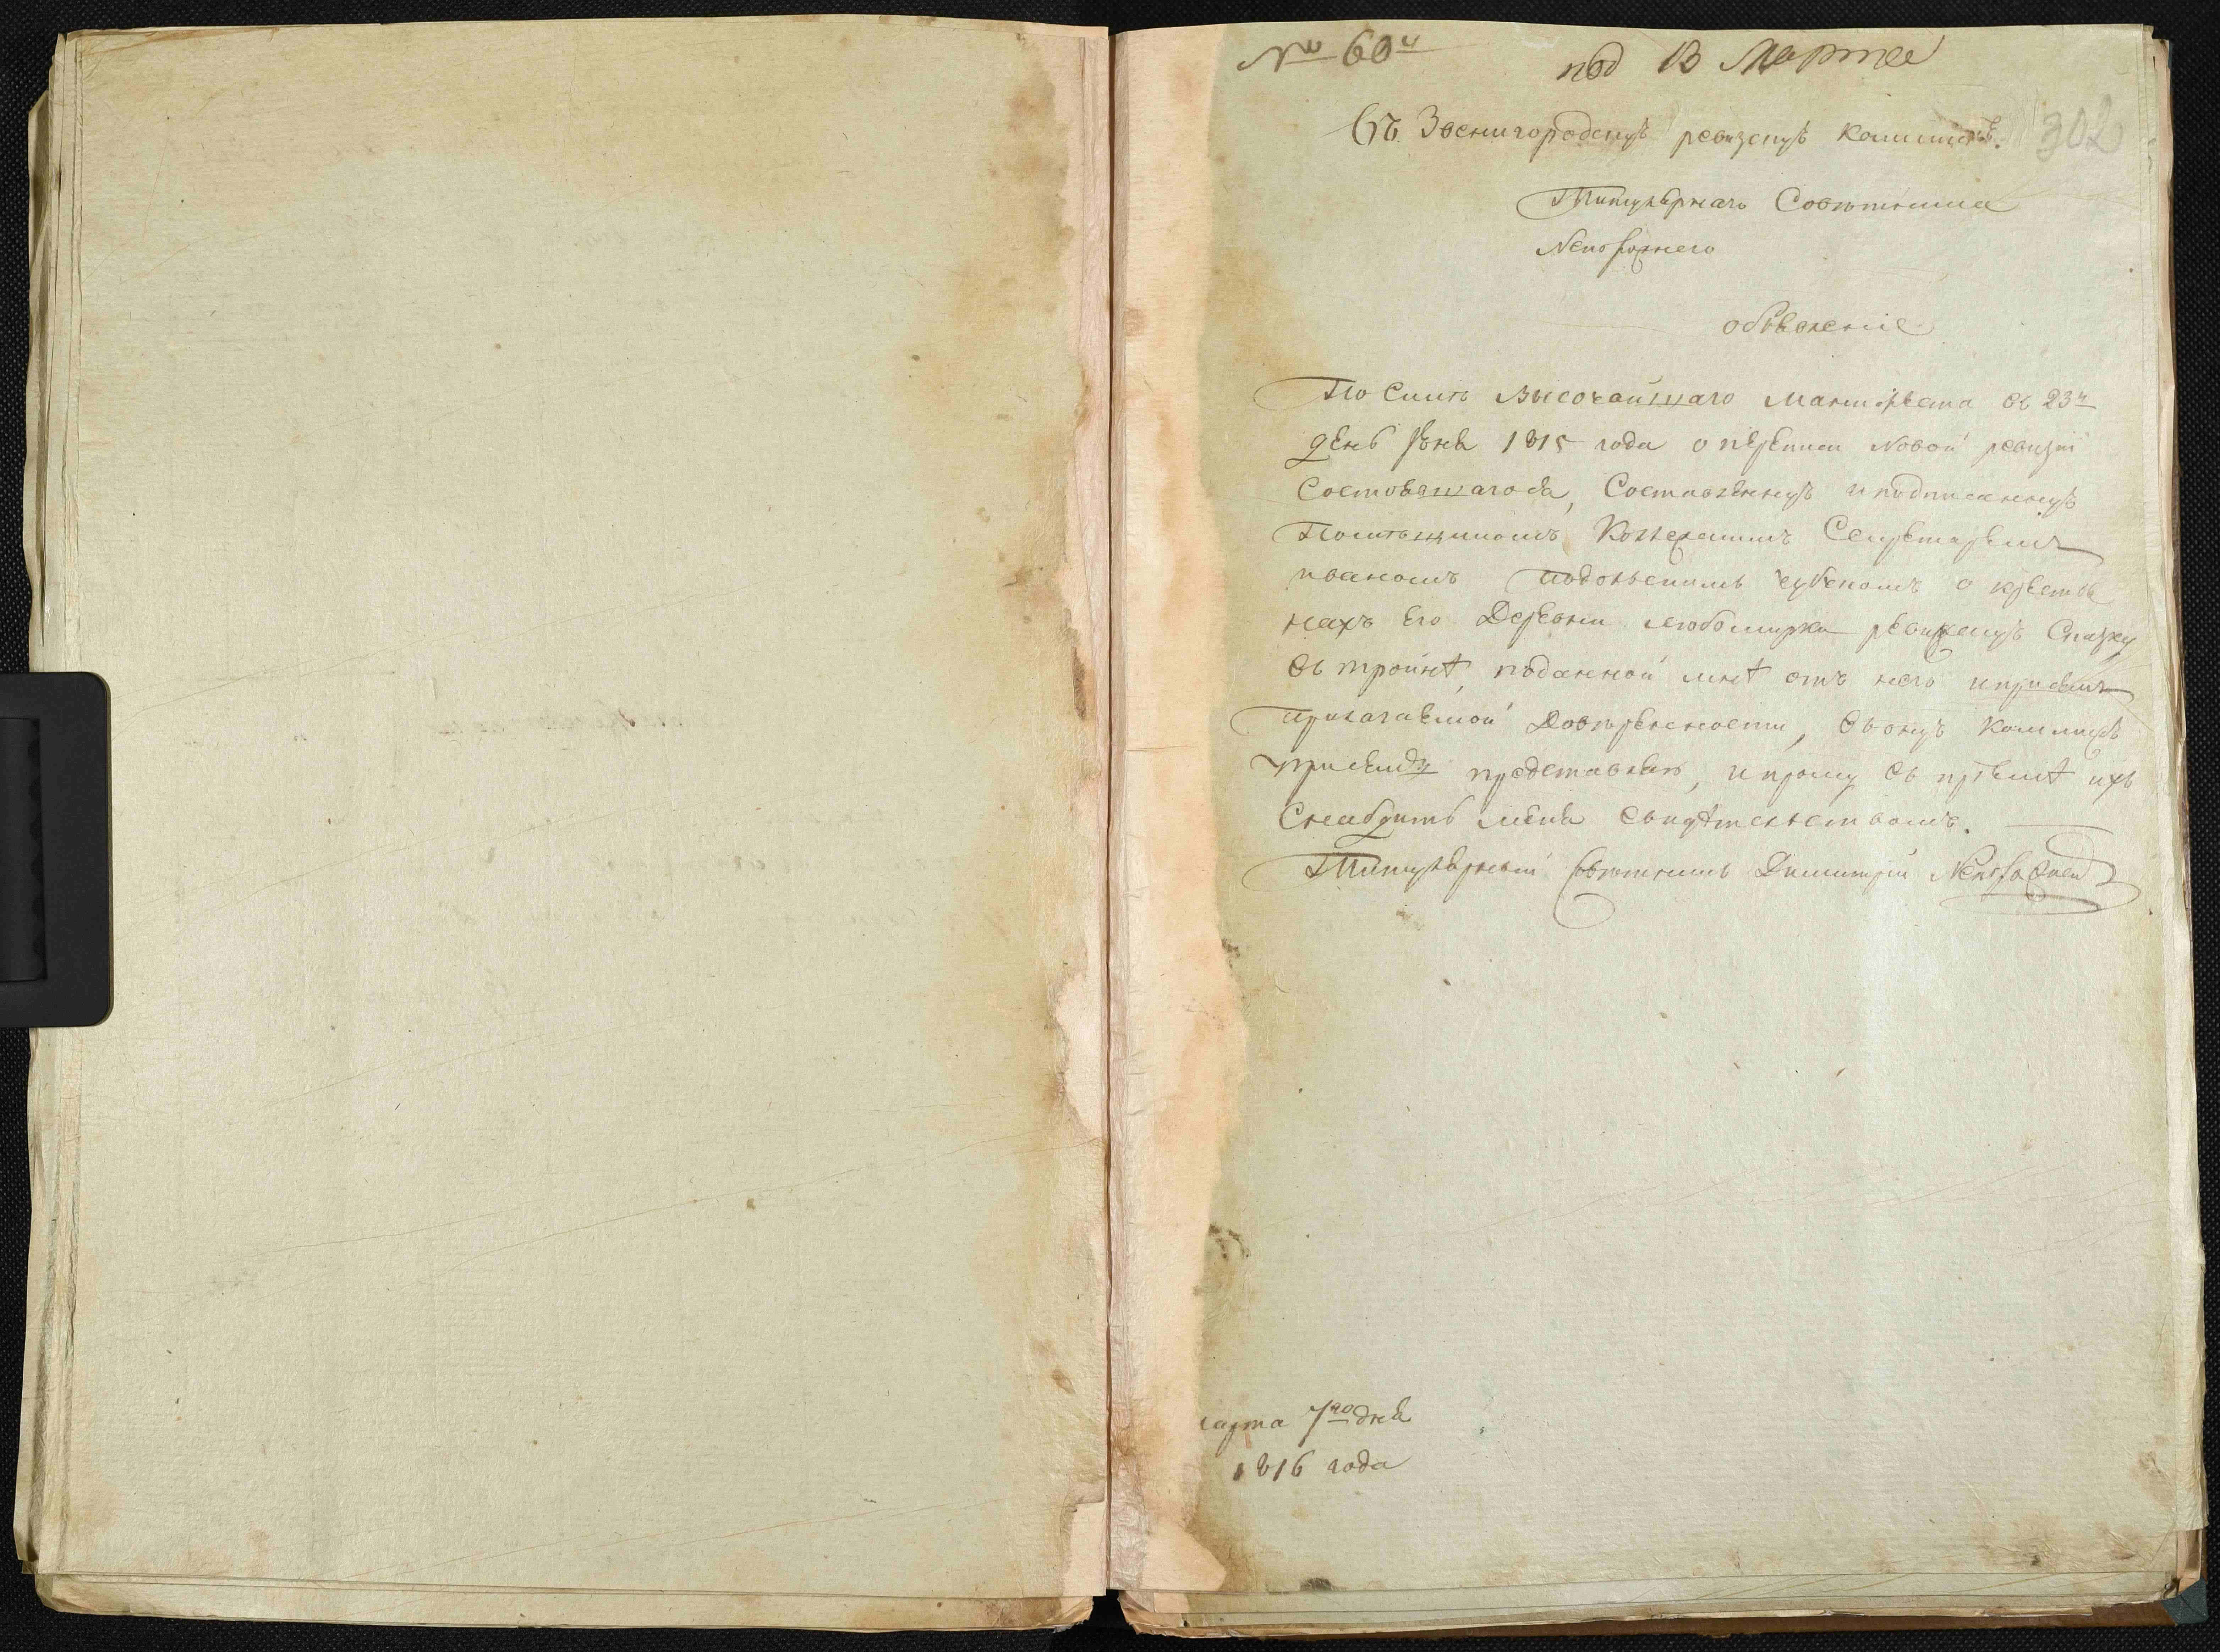 № 60й
под 13 Марта
302
Въ Звенигородскую ревизскую комисию.
Титулярнаго Совѣтника
Непорожнего
объявление
По Силѣ Высочайшаго Манифеста въ 23й
день Июня 1815 года о переписи Новой ревизіи
Состоявшагося, Составленную и подписанную
Помѣщикомъ Колежскимъ Секретаремъ
иваномъ чубекомъ о крестья
нахъ Его Деревни любомирки ревизскую Сказку
въ тройнѣ, поданной мнѣ отъ него и при семъ
прилагаемой Довѣренности, въ оную Комисию
при семъ представляю, и прошу въ приемѣ ихъ
Снабдить меня свидѣтельствомъ.
Титулярный Совѣтникъ Димитрій Непорожней
марта 7го дня
1816 года